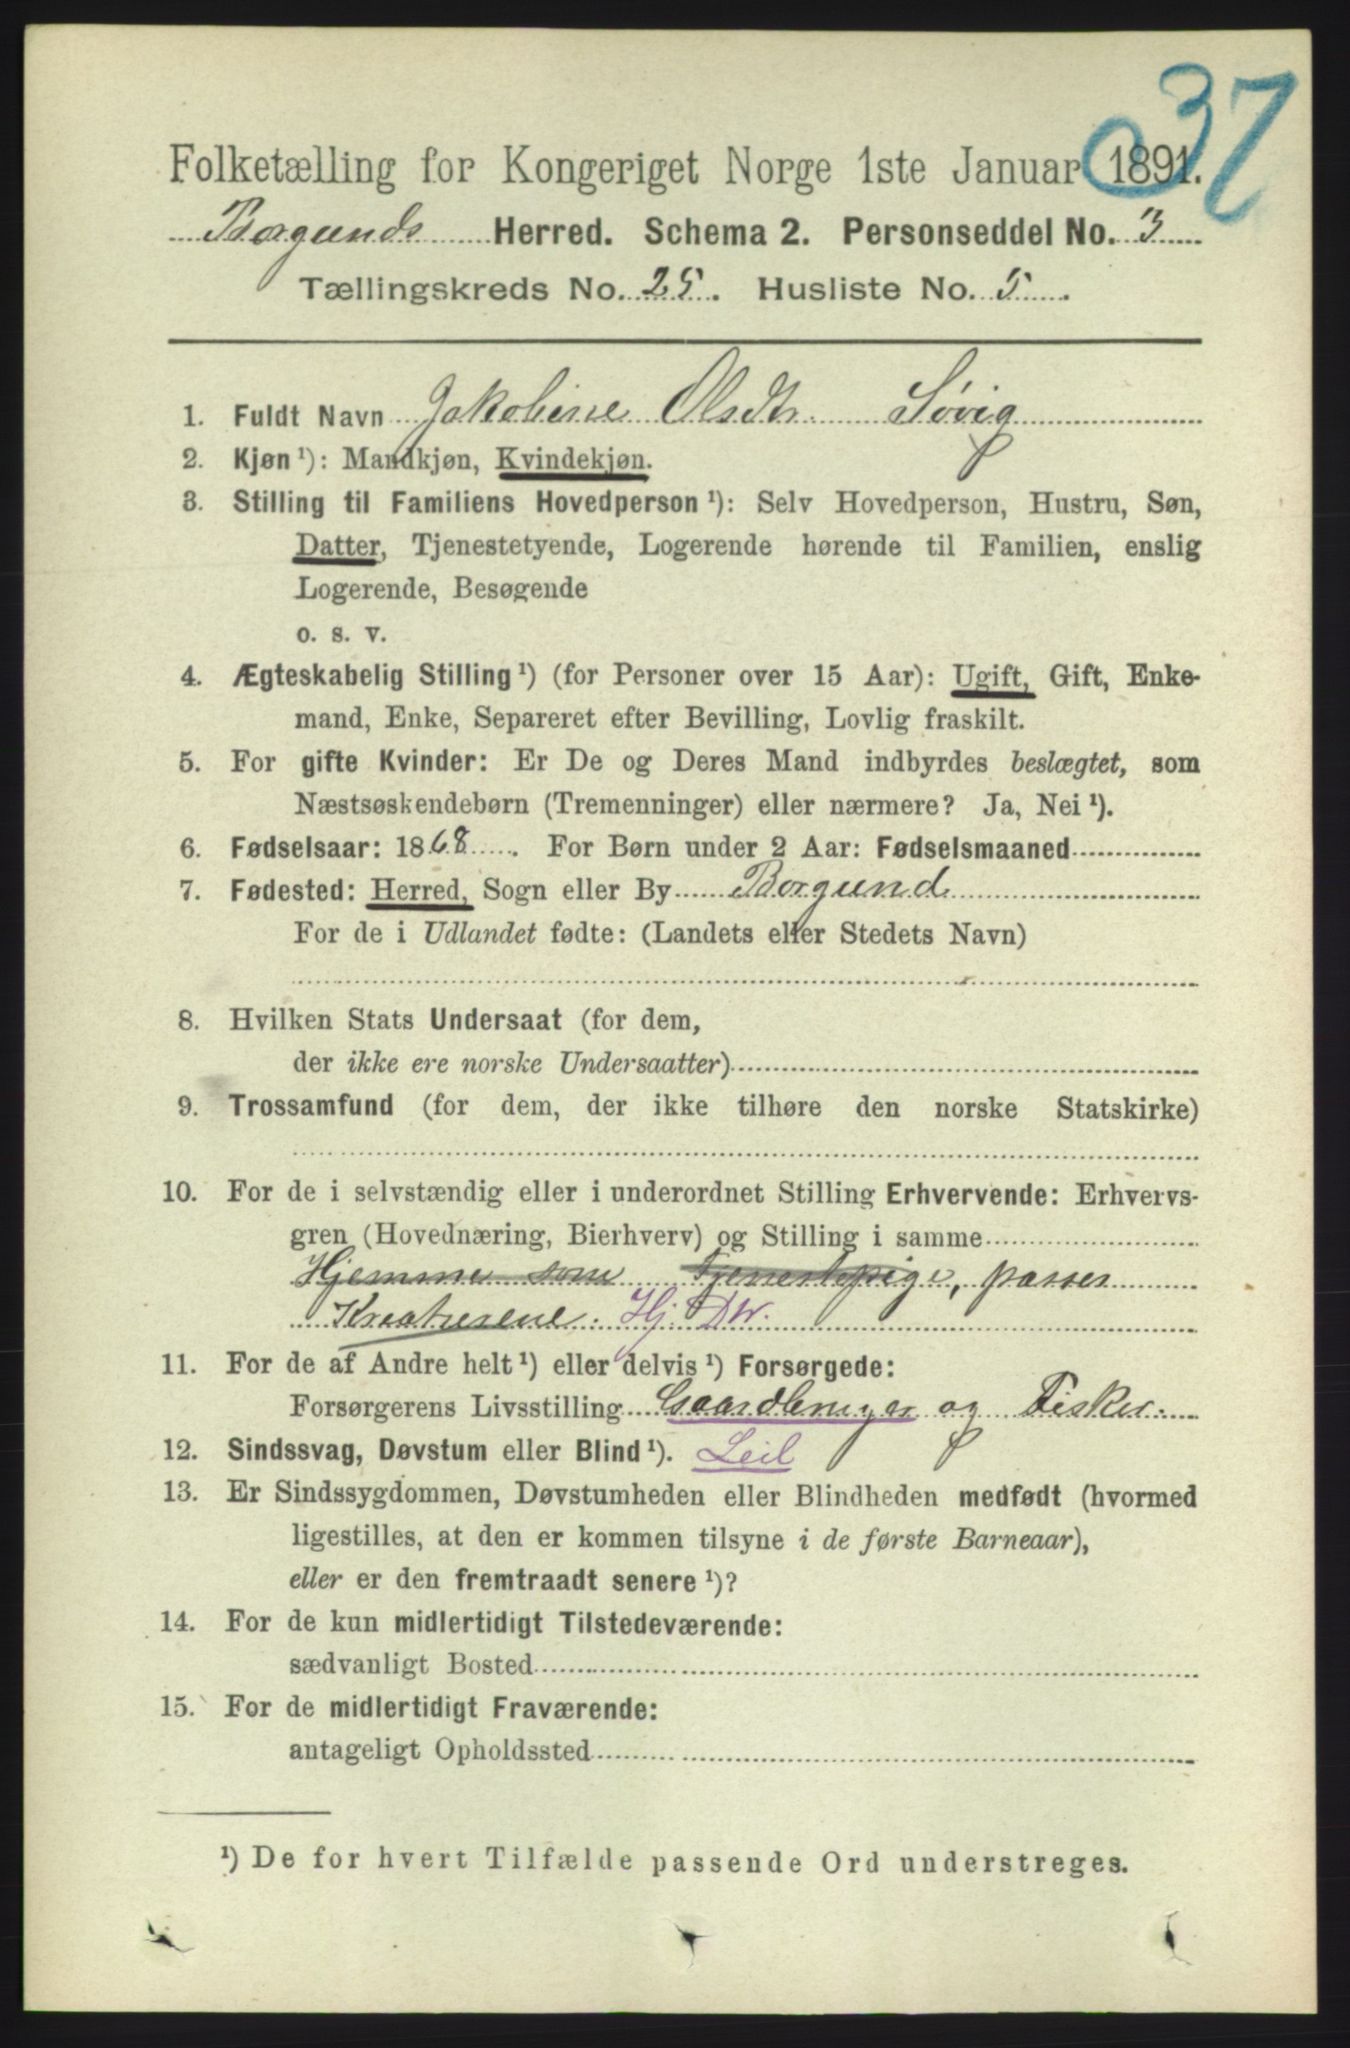 37
Folketælling for Kongeriget Norge 1ste Januar 1891.
Borgunds Herred. Schema 2. Personseddel No. 3
Tællingskreds No. 25. Husliste No. 5.
1. Fuldt Navn Jakobine Olsdtr Søvig
2. Kjøn ¹): Mandkjøn, Kvindekjøn.
3. Stilling til Familiens Hovedperson ¹): Selv Hovedperson, Hustru, Søn,
Datter, Tjenestetyende, Logerende hørende til Familien, enslig
Logerende, Besøgende
o. s. v.
4. Ægteskabelig Stilling ¹) (for Personer over 15 Aar): Ugift, Gift, Enke-
mand, Enke, Separeret efter Bevilling, Lovlig fraskilt.
5. For gifte Kvinder: Er De og Deres Mand indbyrdes beslægtet, som
Næstsøskendebørn (Tremenninger) eller nærmere? Ja, Nei ¹).
6. Fødselsaar: 1868. For Børn under 2 Aar: Fødselsmaaned
7. Fødested: Herred, Sogn eller By Borgund
For de i Udlandet fødte: (Landets eller Stedets Navn)
8. Hvilken Stats Undersaat (for dem,
der ikke ere norske Undersaatter)
9. Trossamfund (for dem, der ikke tilhøre den norske Statskirke)
10. For de i selvstændig eller i underordnet Stilling Erhvervende: Erhvervs-
gren (Hovednæring, Bierhverv) og Stilling i samme
Hjemme som Tjenestepige, passer
Kreaturene. Hj. DW.
11. For de af Andre helt ¹) eller delvis ¹) Forsørgede:
Forsørgerens Livsstilling Gaardbruger og Fisker.
12. Sindssvag, Døvstum eller Blind ¹). Leil
13. Er Sindssygdommen, Døvstumheden eller Blindheden medfødt (hvormed
ligestilles, at den er kommen tilsyne i de første Barneaar),
eller er den fremtraadt senere ¹)?
14. For de kun midlertidigt Tilstedeværende:
sædvanligt Bosted
15. For de midlertidigt Fraværende:
antageligt Opholdssted
¹) De for hvert Tilfælde passende Ord understreges.